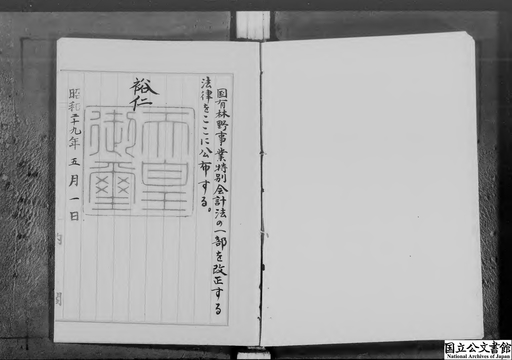 国有林野事業特別会計法の一部を改正する
法律をここに公布する。
裕仁
天皇御璽
昭和三十九年五月一日
国立公文書館
National Archives of Japan